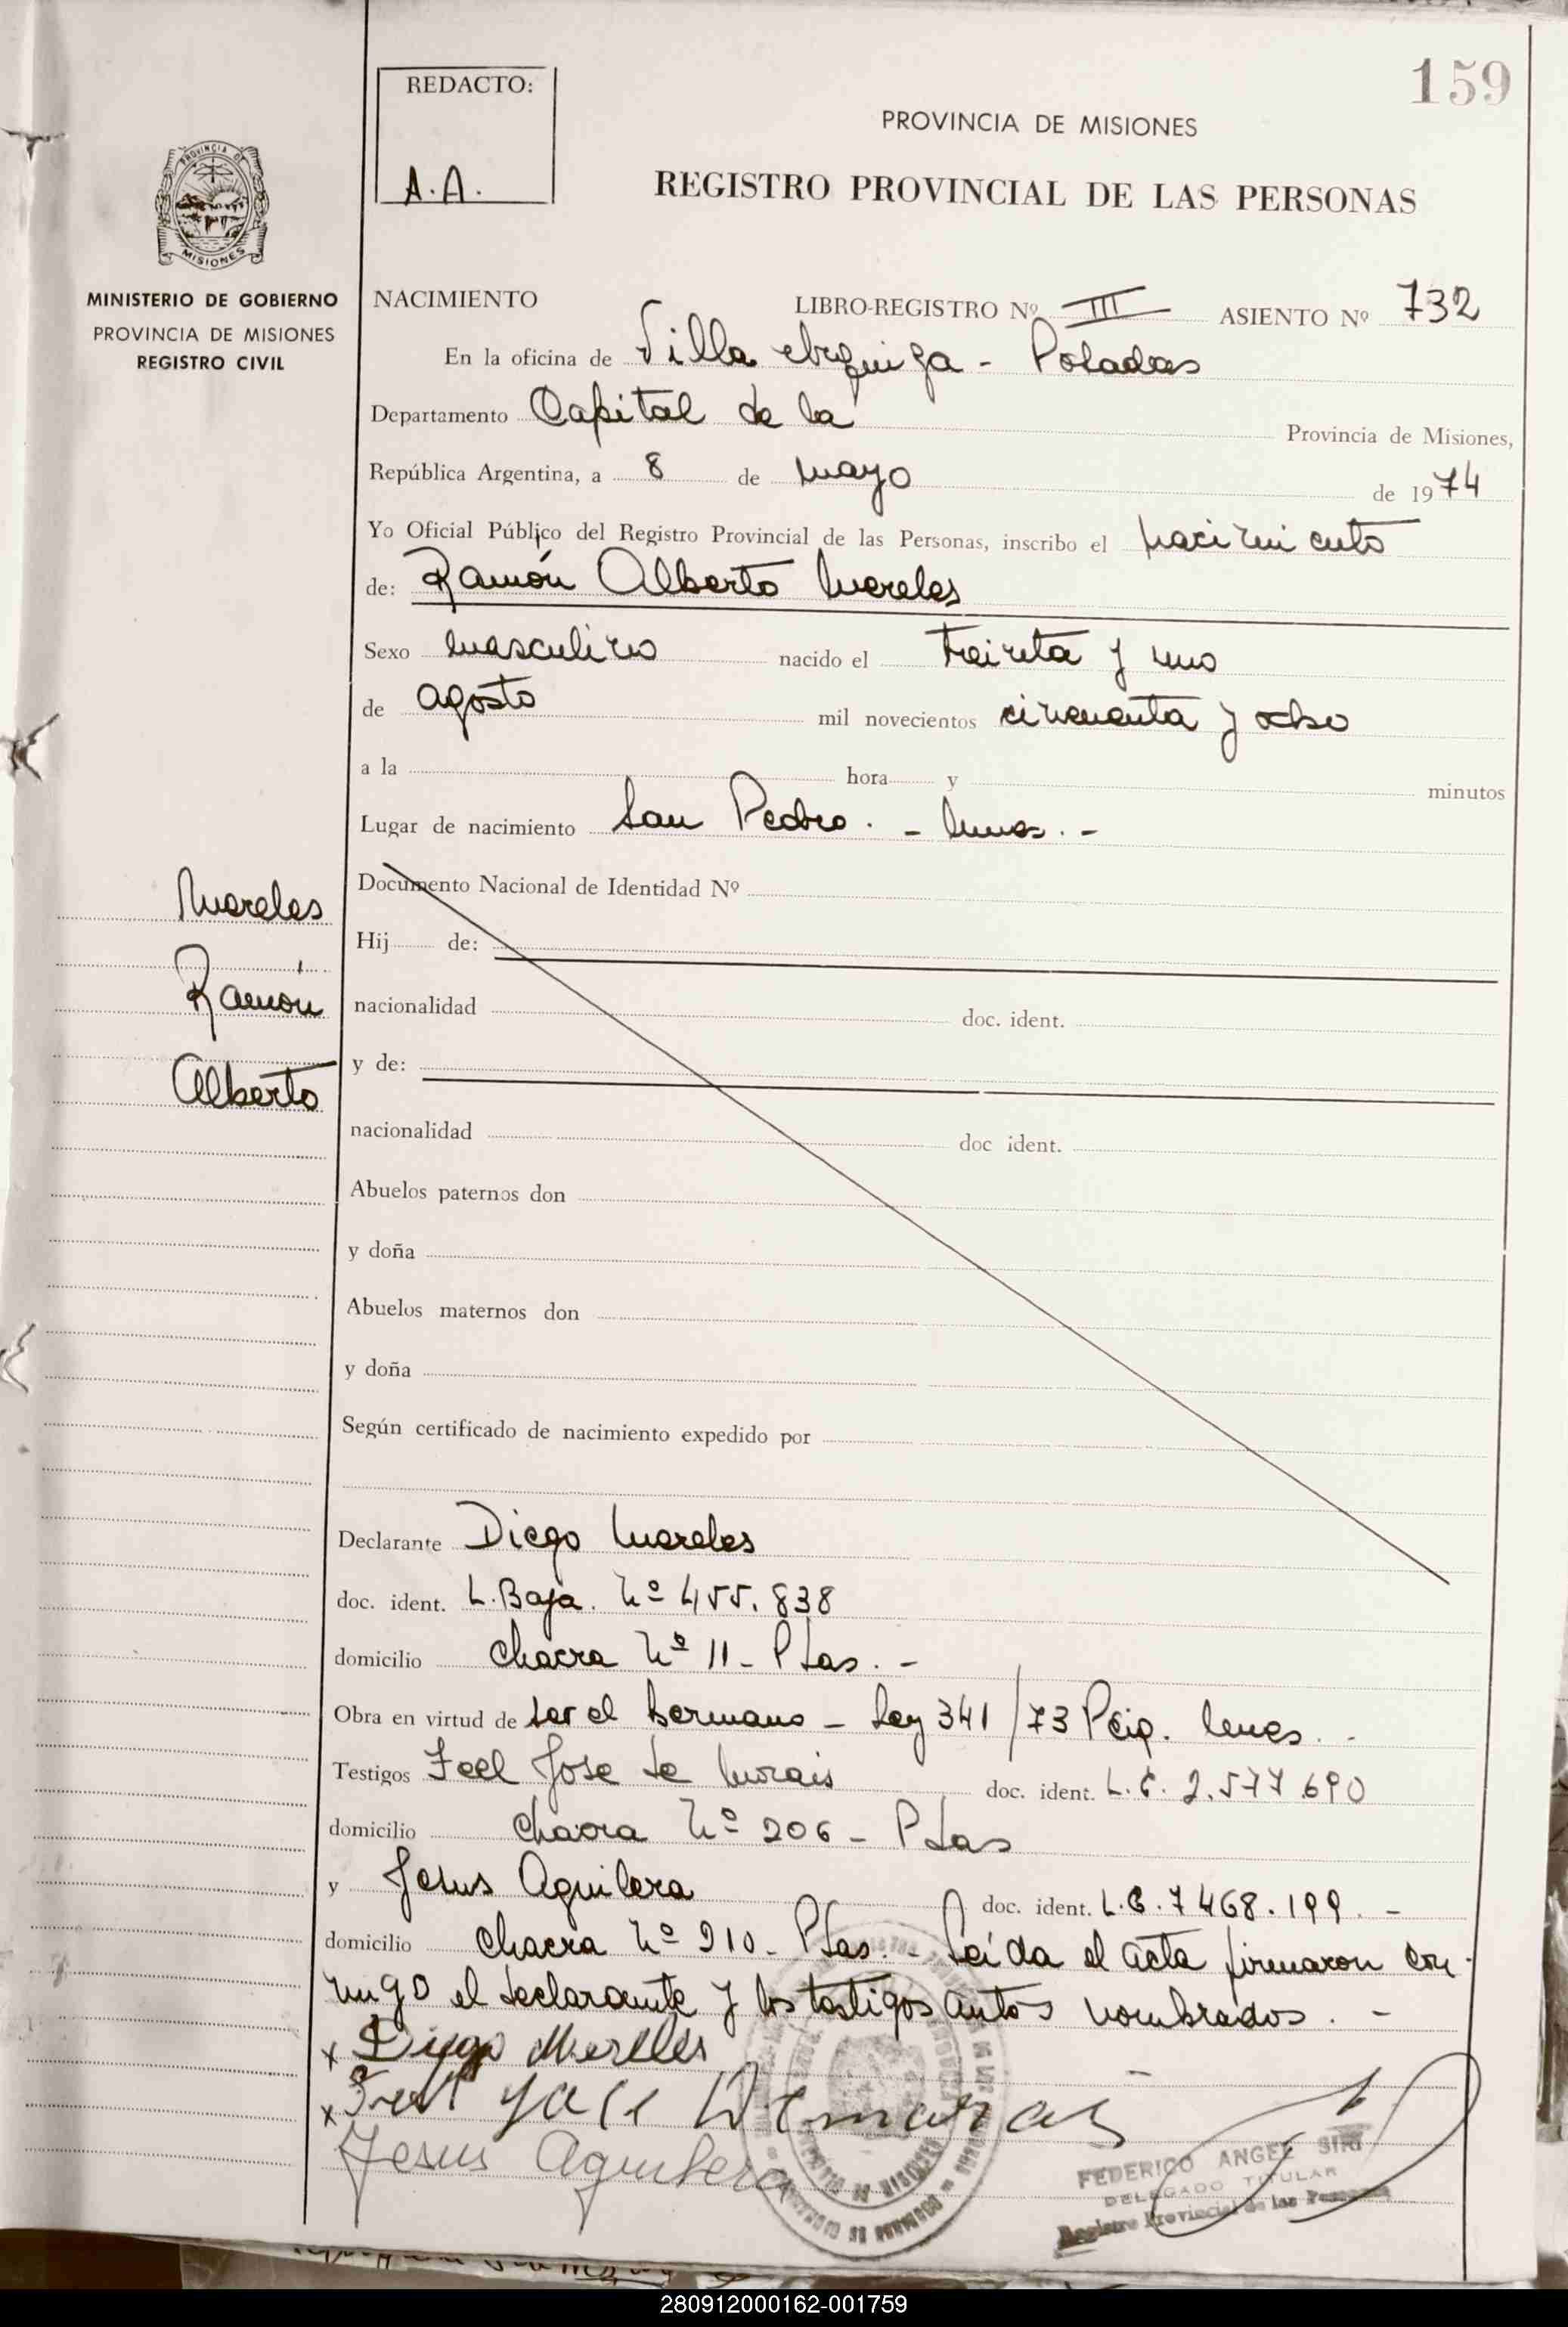 159
REDACTO:
A.A.
PROVINCIA DE MISIONES
REGISTRO PROVINCIAL DE LAS PERSONAS
PROVINCIA DE
MISIONES
MINISTERIO DE GOBIERNO
PROVINCIA DE MISIONES
REGISTRO CIVIL
NACIMIENTO LIBRO-REGISTRO Nº III ASIENTO Nº 732
En la oficina de Villa Urquiza - Posadas
Departamento Capital de la Provincia de Misiones,
República Argentina, a 8 de mayo de 1974
Yo Oficial Público del Registro Provincial de las Personas, inscribo el nacimiento
de: Ramón Alberto Mereles
Sexo masculino nacido el treinta y uno
de agosto mil novecientos cincuenta y ocho
a la hora y minutos
Lugar de nacimiento San Pedro. - Mnes. -
Mereles
Ramón
Alberto
Documento Nacional de Identidad Nº
Hij de:
nacionalidad doc. ident.
y de:
nacionalidad doc ident.
Abuelos paternos don
y doña
Abuelos maternos don
y doña
Según certificado de nacimiento expedido por
Declarante Diego Mereles
doc. ident. L. Baja. Nº 455.838
domicilio Chacra Nº 11 - Pdas. -
Obra en virtud de ser el hermano - Ley 341/73 Pcia. Mnes. -
Testigos Feel Jose de Morais doc. ident. L.E. 2.577.690
domicilio Chacra Nº 206 - Pdas
y Jesus Aguilera doc. ident. L.E. 7468.199. -
domicilio Chacra Nº 210 - Pdas. - Leída el acta firmaron con-
migo el declarante y los testigos antes nombrados. -
x Diego Mereles
x Jose Demorais
Jesus Aguilera
FEDERICO ANGEL SIRI
DELEGADO TITULAR
Registro Provincial de las Personas
280912000162-001759